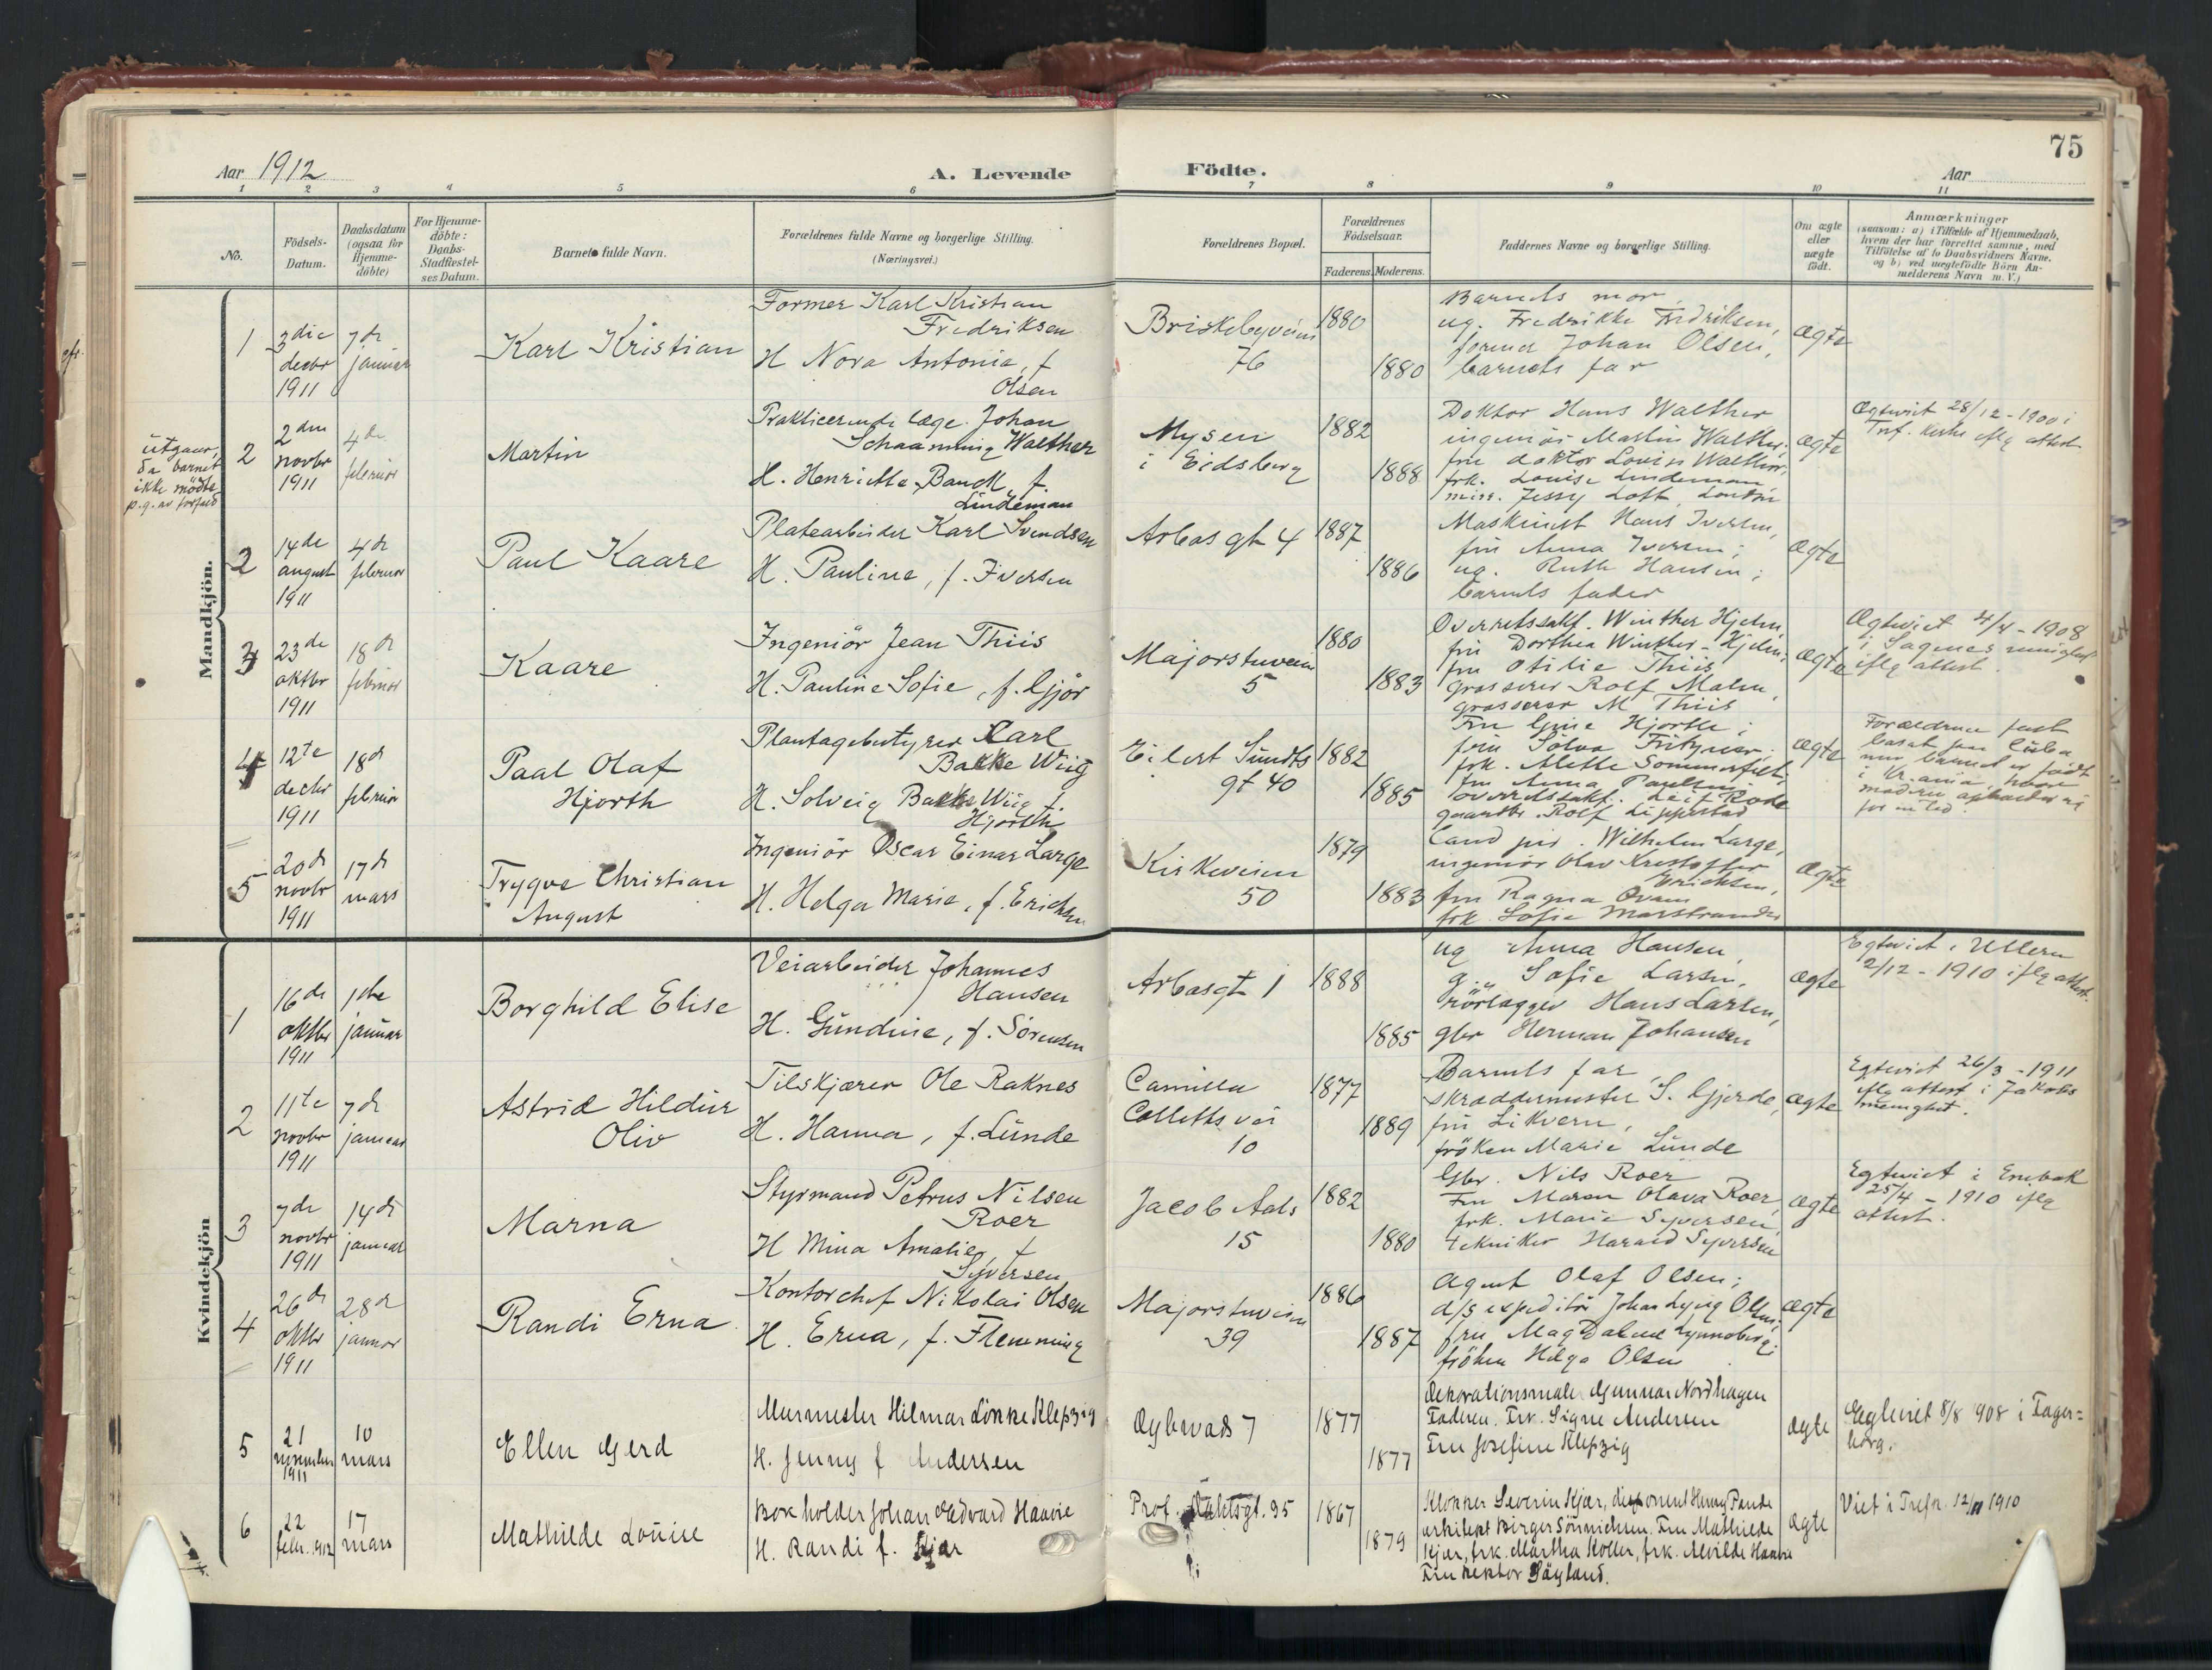 75
Aar 1912
A. Levende Födte.
Aar
1 2 3 4 5 6 7 8 9 10 11
No.
Födsels-Datum.
Daabsdatum (ogsaa for Hjemme-döbte)
For Hjemme-döbte: Daabs-Stadfæstel-ses Datum.
Barnets fulde Navn.
Forældrenes fulde Navne og borgerlige Stilling. (Næringsvei.)
Forældrenes Bopæl.
Forældrenes Födselsaar.
Faderens. Moderens.
Faddernes Navne og borgerlige Stilling.
Om ægte eller uægte födt.
Anmærkninger
(saasom: a) i Tilfælde af Hjemmedaab, hvem der har forrettet samme, med Tilföielse af to Daabsvidners Navne. og b) ved uægtefödte Börn An-melderens Navn m. V.)
Mandkjön.
1
3die decbr 1911
7de januar
Karl Kristian
Former Karl Kristian Fredriksen
H Nora Antonie, f Olsen
Briskebyveien 76
1880
1880
Barnets mor,
ug. Fredrikke Fredriksen,
former Johan Olsen,
barnets far
ægte
utgaar,
da barnet
ikke mödte
p.g. av forfald
2
2den novbr 1911
4de februar
Martin
Prakticerende læge Johan
Schaanning Walther
H. Henriette Banck, f.
Lindeman
Mysen
i Eidsberg
1882
1888
Doktor Hans Walther
ingeniör Martin Walther,
fru doktor Lovise Walther,
frk. Louise Lindeman,
miss. Jessy Lott, London
ægte
Ægteviet 28/12-1900 i
Tref. kirke iflg attest
2
14de august 1911
4de februar
Paul Kaare
Platearbeider Karl Svendsen
H. Pauline, f. Iversen
Arbos gt 4
1887
1886
Maskinist Hans Iversen,
fru Anna Iversen;
ug. Ruth Hansen;
barnets fader
ægte
3
23de oktbr 1911
18de februar
Kaare
Ingeniör Jean Thiis
H. Pauline Sofie, f. Gjör
Majorstuveien
5
1880
1883
Overretssakf. Winther Hjelm,
fru Dorthea Winther-Hjelm,
fru Otilie Thiis
grosserer Rolf Malm,
grosserer M Thiis
ægte
Ægteviet 4/4-1908
i Sagenes menighet
iflg attest.
4
12te decbr 1911
18de februar
Paal Olaf
Hjorth
Plantagebestyrer Carl
Bakke Wiig
H. Solveig Bakke Wiig f.
Hjorth
Eilert Sundts
gt 40
1882
1885
Fru Hjorth;
fru Sölva
frk. Alette Sommerfelt
fru Anna Paulsen
overretssakf. Leif Rode
Rolf Lippestad
ægte
Forældrene fast
bosat paa Cuba
men barnet er födt
i Kr.ania, hvor
moderen opholder sig
for en tid.
5
20de novbr 1911
17de mars
Trygve Christian
August
Ingeniör Oscar Einar Large
H. Helga Marie, f. Erichsen
Kirkeveien
50
1879
1883
Cand jur. Wilhelm Large,
ingeniör Olav Kristoffer
Erichsen,
fru Ragna Qvam
frk. Sofie Marstrander
ægte
Kvindekjön
1
16de oktbr 1911
1ste januar
Borghild Elise
Veiarbeider Johannes
Hansen
H. Gundine, f. Sörensen
Arbosgt 1
1888
1885
ug Anna Hansen,
g. Sofie Larsen,
rörlægger Hans Larsen,
gbr Herman Johansen
ægte
Egteviet i Ullern
2/12-1910 iflg attest.
2
11te novbr 1911
7de januar
Astrid Hildur
Oliv
Tilskjærer Ole Raknes
H. Hanna, f. Lunde
Camilla
Colletts vei
10
1877
1889
Barnets far,
skræddermester S. Gjerde,
fru Likvern,
fröken Marie Lunde
ægte
Egteviet 26/3-1911
iflg attest i Jakobs
menighet.
3
7de novbr 1911
14de januar
Marna
Styrmand Petrus Nilsen
Roer
H Mina Amalie, f
Syversen
Jacob Aals
15
1882
1880
Gbr. Nils Roer
Fru Maren Olava Roer,
frk. Marie Syversen,
tekniker Harald Syversen
ægte
Egteviet i Enebak
25/4-1910 iflg
attest.
4
26de oktbr 1911
28de januar
Randi Erna
Kontorchef Nikolai Olsen
H. Erna, f. Flemming
Majorstuveien
39
1886
1887
Agent Olaf Olsen;
d/s expeditör Johan Lyng Olsen,
fru Magdalene Lynneberg;
fröken Helga Olsen
ægte
5
21 november 1911
10 mars
Ellen Gerd
Murmester Hilmar Lönke Klepzig
H. Jenny f Andersen
Dybwads 7
1877
1877
Dekorationsmaler Gunnar Nordhagen
Faderen. Frk. Signe Andersen
Fru Josefine Klepzig
ægte
Egteviet 8/8 908 i Fager=
borg.
6
22 febr. 1912
17 mars
Mathilde Louise
Boxholder Johan Edvard Haavie
H. Randi f. Kjær
Prof. Dahlsgt. 35
1867
1879
Klokker Severin Kjær, disponent Henry Pande
arkitekt Birger Sönnichsen. Fru Mathilde
Kjær, frk. Martha Koller, frk. Alvilde Haavie
Fru Rektor Säyland.
ægte
Viet i Trefn. 12/11 1910